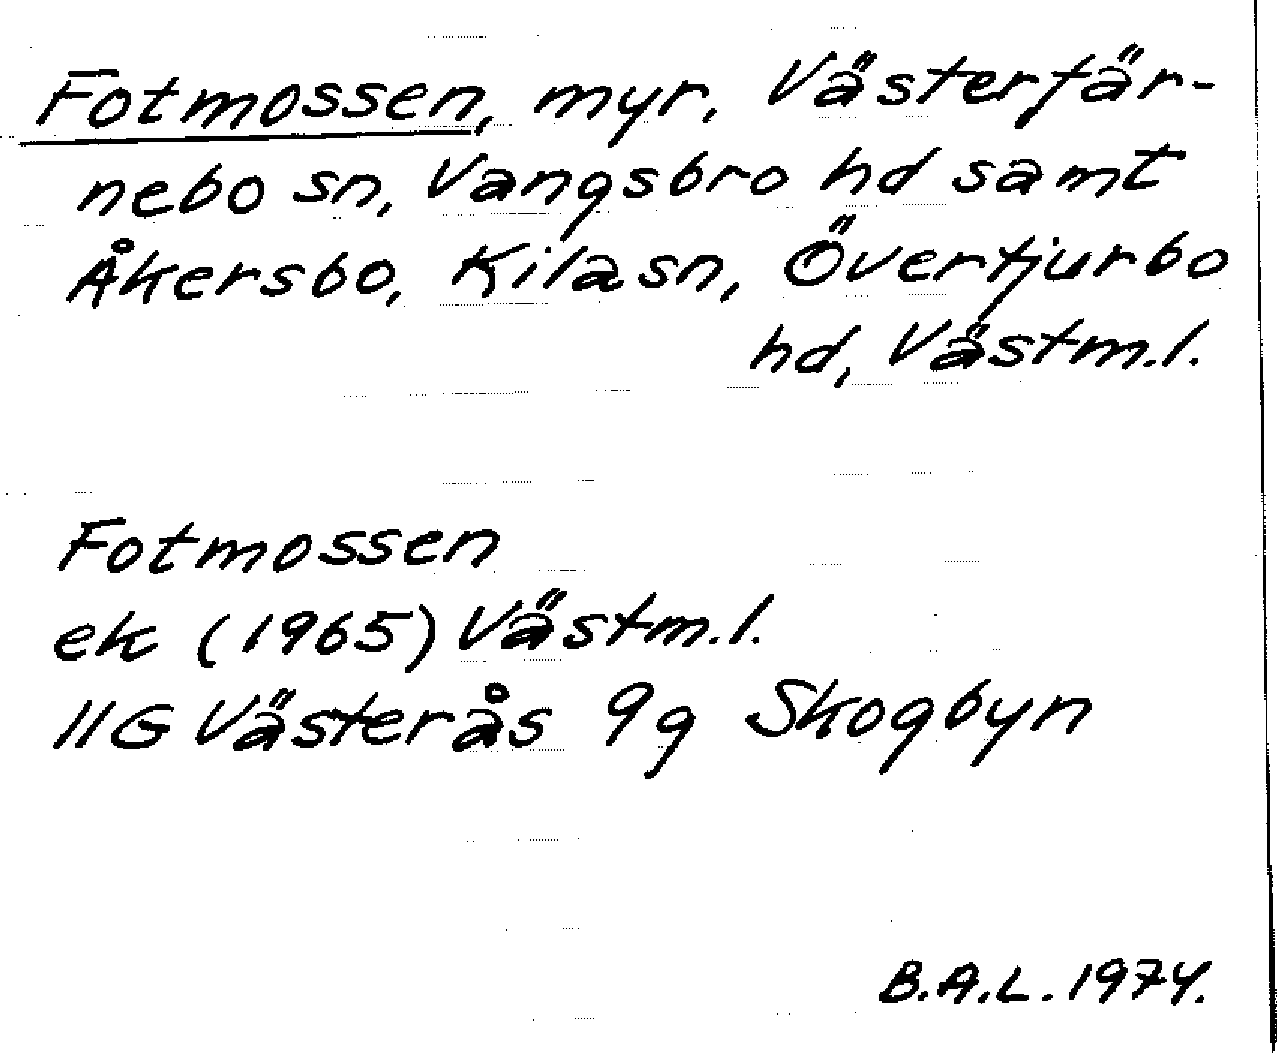 Fotmossen, myr, Västerfär-
nebo sn, Vangsbro hd samt
Åkersbo, Kila sn, Övertjurbo
hd, Västm.l.
Fotmossen
ek (1965) Västm.l.
11G Västerås 9g Skogbyn
B.A.L. 1974.